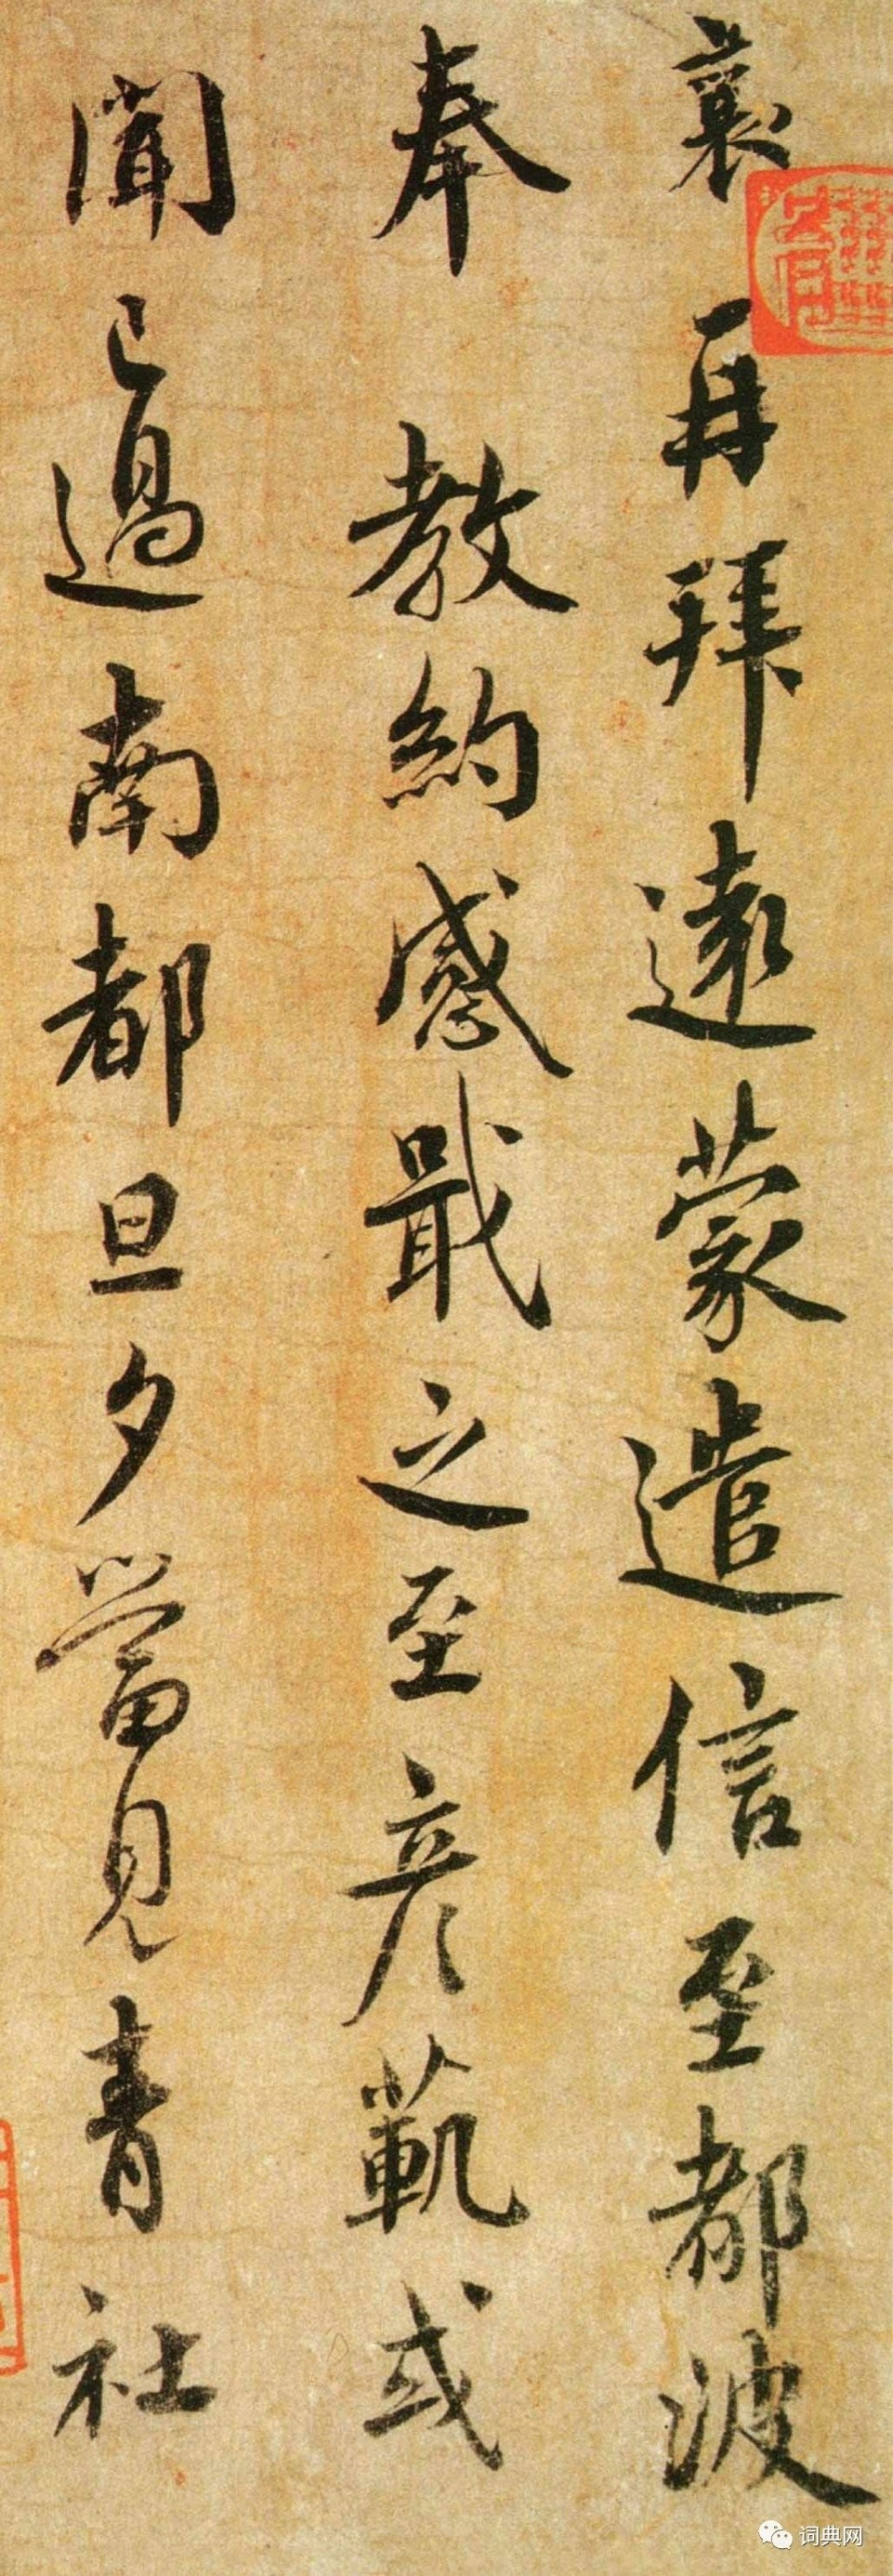 襄再拜遠蒙遣信至都波
奉 教約感戢之至彦範或
聞已過南都旦夕當見青社
词典网